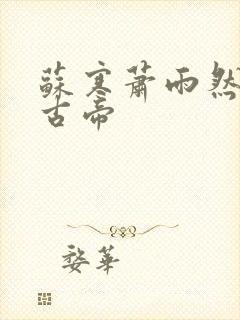 蘇寒蕭雨然
古帝
婺華